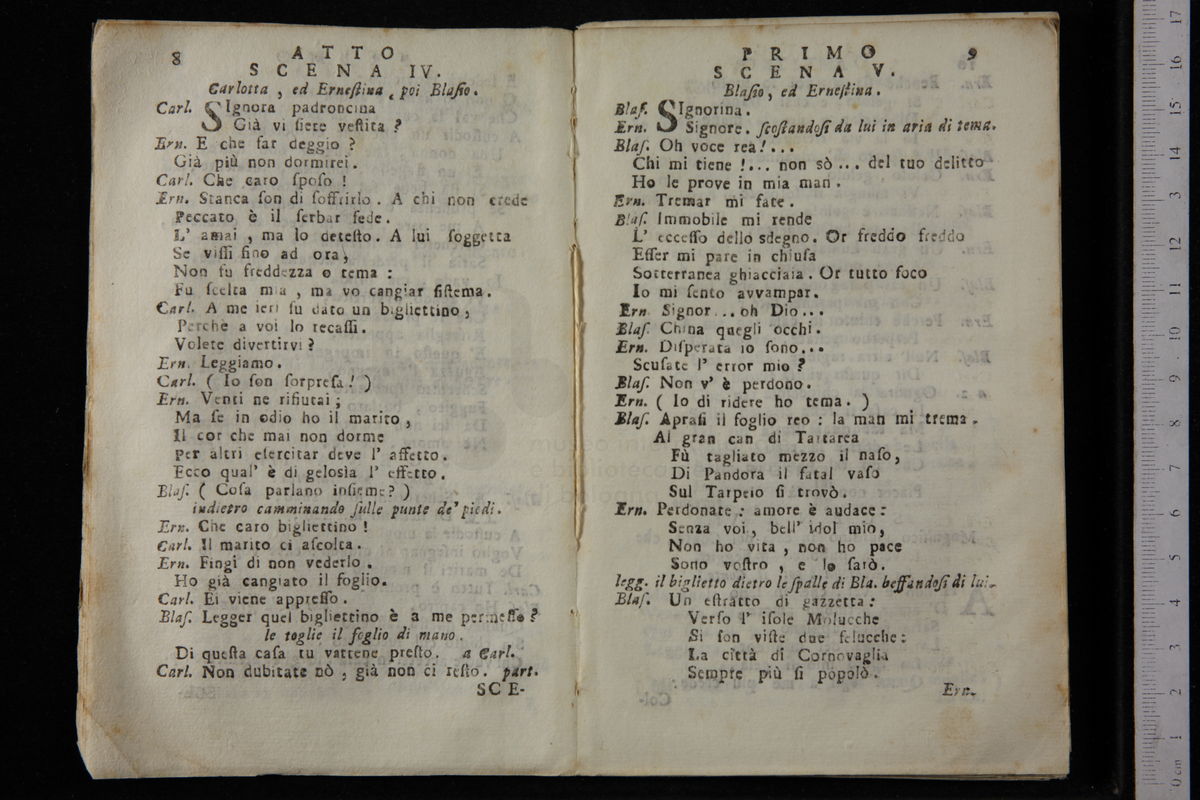 8
ATTO
SCENA IV.
Carlotta, ed Erneſtina, poi Blaſio.
Carl. SIgnora padroncina
Già vi ſiete veſtita?
Ern. E che far deggio?
Già più non dormirei.
Carl. Che caro ſpoſo!
Ern. Stanca ſon di ſoffrirlo. A chi non crede
Peccato è il ſerbar fede.
L' amai, ma lo deteſto. A lui ſoggetta
Se viſſi fino ad ora,
Non fu freddezza o tema:
Fu ſcelta mia, ma vo cangiar ſiſtema.
Carl. A me ieri fu dato un bigliettino,
Perchè a voi lo recaſſi.
Volete divertirvi?
Ern. Leggiamo.
Carl. (Io ſon ſorpreſa!)
Ern. Venti ne rifiutai;
Ma ſe in odio ho il marito,
Il cor che mai non dorme
Per altri eſercitar deve l' affetto.
Ecco qual' è di geloſìa l' effetto.
Blaſ. (Coſa parlano inſieme?)
indietro camminando ſulle punte de' piedi.
Ern. Che caro bigliettino!
Carl. Il marito ci aſcolta.
Ern. Fingi di non vederlo.
Ho già cangiato il foglio.
Carl. Ei viene appreſſo.
Blaſ. Legger quel bigliettino è a me permeſſo?
le toglie il foglio di mano.
Di queſta caſa tu vattene preſto. a Carl.
Carl. Non dubitate nò, già non ci reſto. part.
SCE-
PRIMO
9
SCENA V.
Blaſio, ed Erneſtina.
Blaſ. SIgnorina.
Ern. Signore. ſcoſtandoſi da lui in aria di tema.
Blaſ. Oh voce rea!...
Chi mi tiene!... non sò... del tuo delitto
Ho le prove in mia man.
Ern. Tremar mi fate.
Blaſ. Immobile mi rende
L' ecceſſo dello sdegno. Or freddo freddo
Eſſer mi pare in chiuſa
Sotterranea ghiacciaia. Or tutto foco
Io mi ſento avvampar.
Ern. Signor... oh Dio...
Blaſ. China quegli occhi.
Ern. Diſperata io ſono...
Scuſate l' error mio?
Blaſ. Non v' è perdono.
Ern. (Io di ridere ho tema.)
Blaſ. Apraſi il foglio reo: la man mi trema.
Al gran can di Tartarea
Fù tagliato mezzo il naſo,
Di Pandora il fatal vaſo
Sul Tarpeio ſi trovò.
Ern. Perdonate: amore è audace:
Senza voi, bell' idol mio,
Non ho vita, non ho pace
Sono voſtro, e lo ſarò.
legg. il biglietto dietro le ſpalle di Bla. beffandoſi di lui.
Blaſ. Un eſtratto di gazzetta:
Verſo l' iſole Molucche
Si ſon viſte due felucche:
La città di Cornovaglia
Sempre più ſi popolò.
Ern.